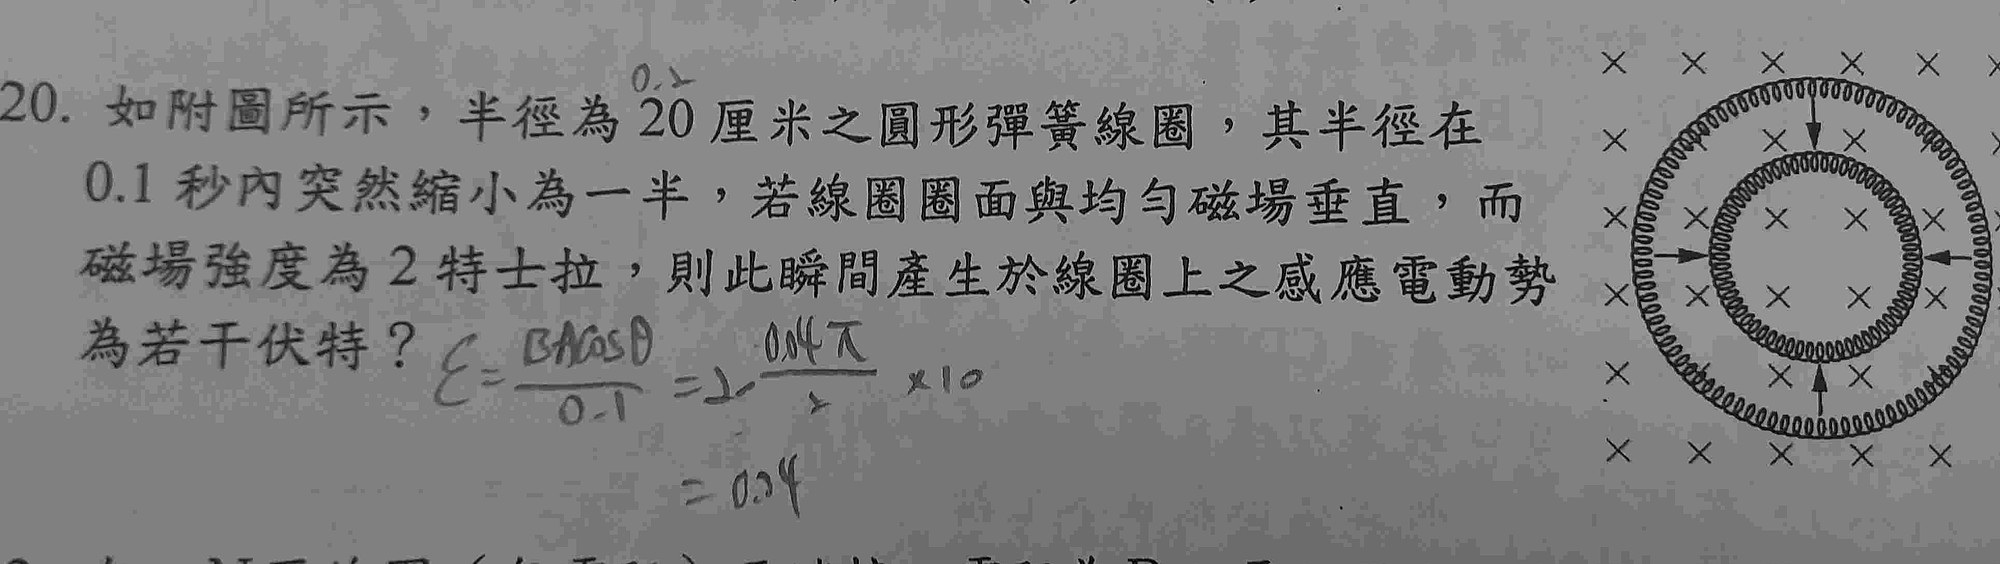 0.2
20. 如附圖所示，半徑為 20 厘米之圓形彈簧線圈，其半徑在
0.1 秒內突然縮小為一半，若線圈圈面與均勻磁場垂直，而
磁場強度為 2 特士拉，則此瞬間產生於線圈上之感應電動勢
為若干伏特？
ε = BAcosθ / 0.1 = 2 · 0.04π / 2 × 10